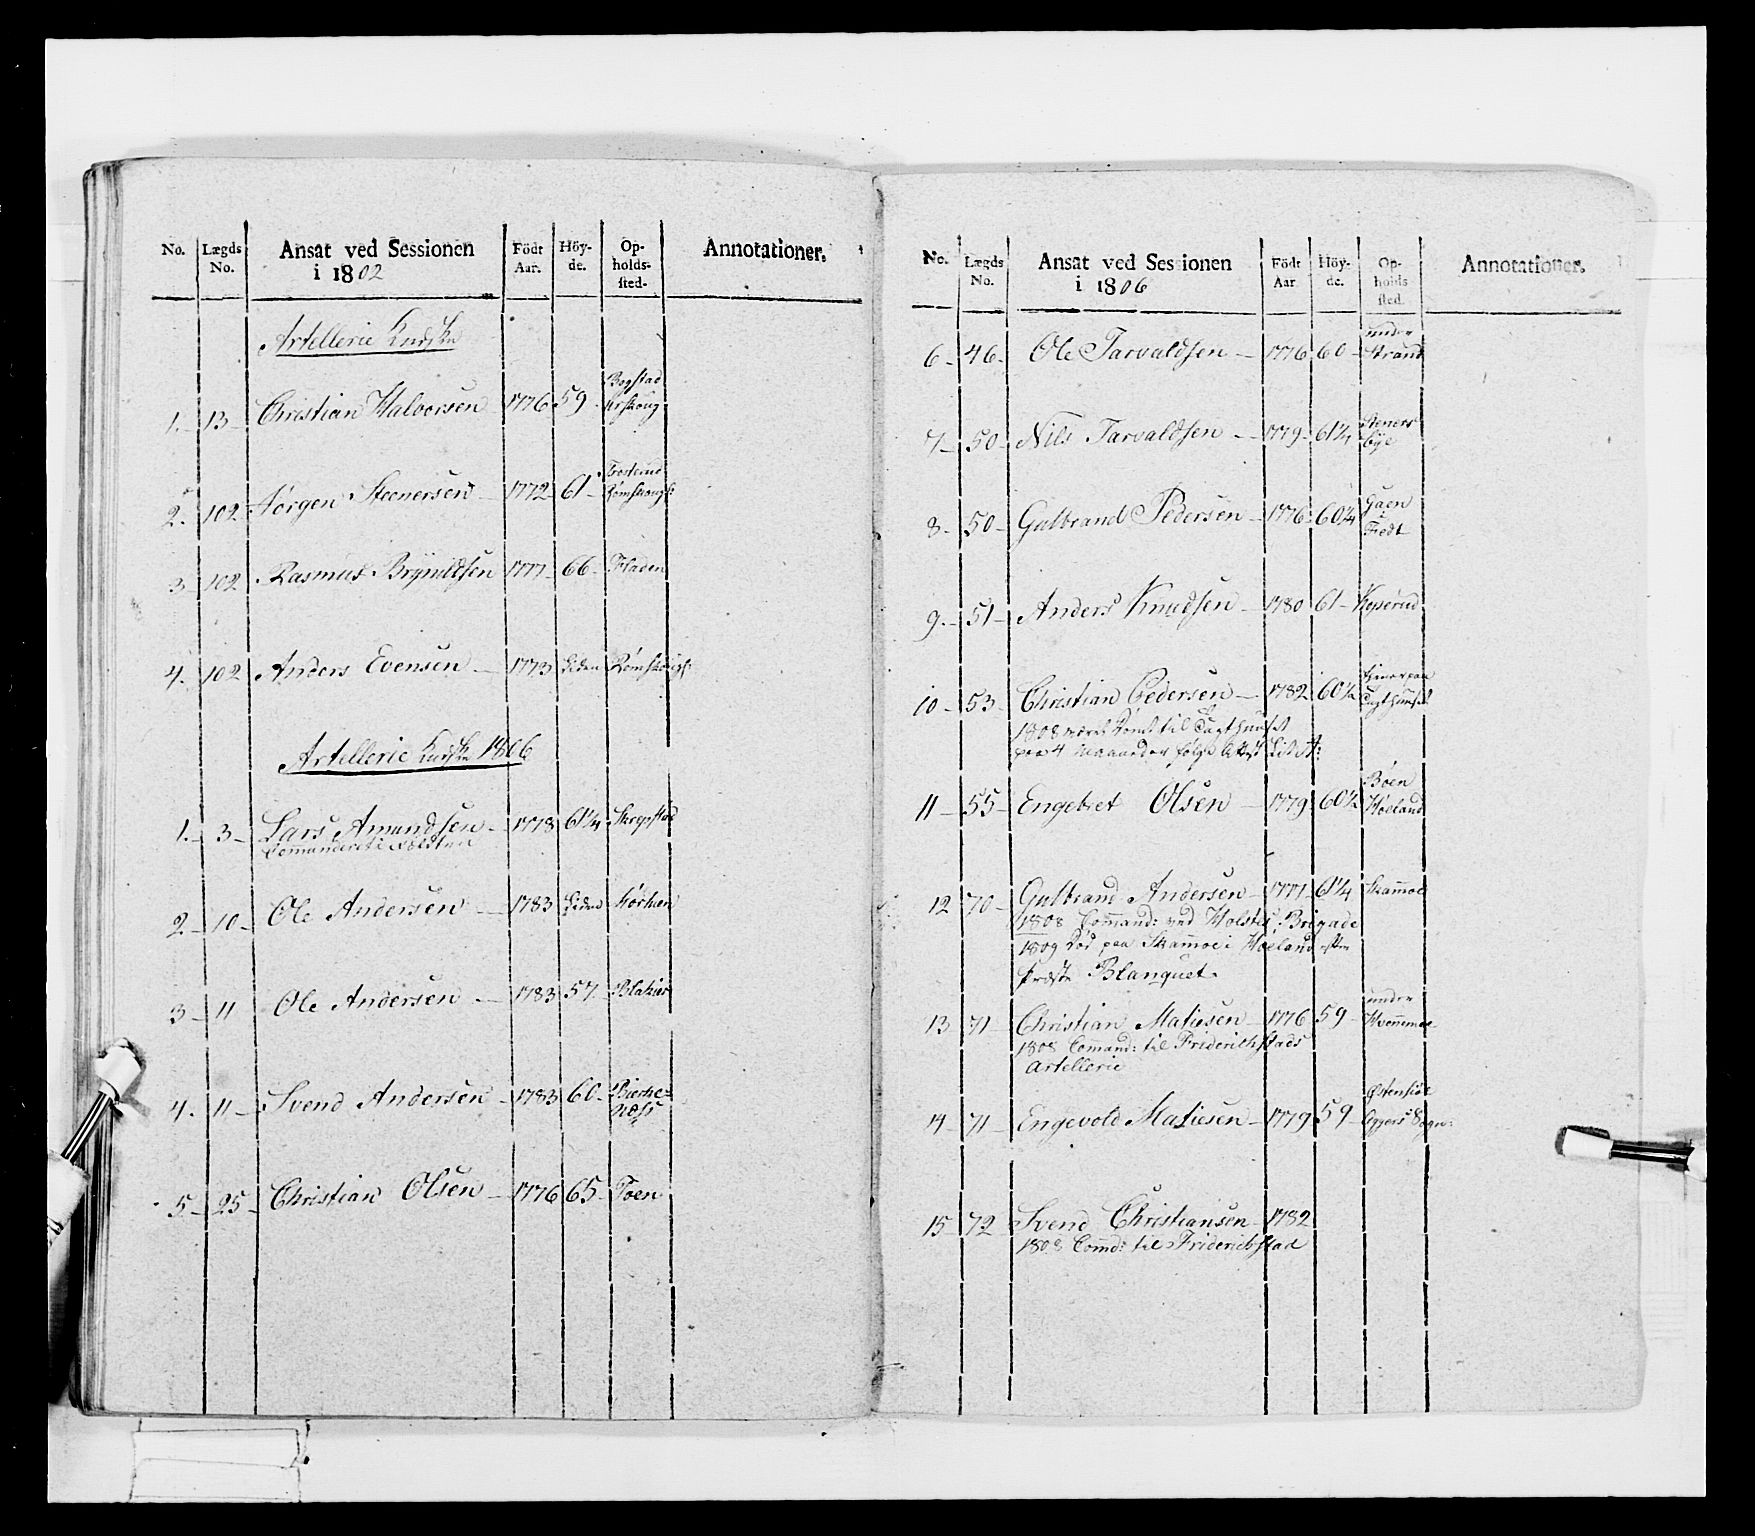 No. Lægds No. Ansat ved Sessionen i 1802 Födt Aar. Höy-de. Op-holds-sted. Annotationer.
Artellerie Kudske
1. 13 Christian Halvorsen 1776 59 Bogstad
2. 102 Jørgen Steenersen 1772 61
3 102 Rasmus Brynildsen 1777 66 Fladen
4. 102 Anders Evensen 1773 Liden
Artellerie Kudske 1806
1. 3 Lars Amundsen 1778 61¼
Commanderet i
2 10 Ole Andersen 1783 Liden
3 11 Ole Andersen 1783 57 Blakier
4. 11 Svend Andersen 1783 60 Bierke-
næss
5 25 Christian Olsen 1776 65 Toen
No. Lægds No. Ansat ved Sessionen i 1806 Födt Aar Höy-de. Op-holds sted. Annotationer.
under
6 46 Ole Tarvaldsen 1776 60 Strand
7 50 Nils Tarvaldsen 1779 61¼
8 50 Gulbrand Pedersen 1776 60¼ Gaen
9. 51 Anders Knudsen 1780 61 Kopperud
10 53 Christian Pedersen 1782 60½ tiener paa
Tugthuuset
1808 været Dømt til Tugthuuset
paa 4 Maaneder følge Attest Lit A:
Bøen
11 55 Engebret Olsen 1779 60½ Høeland
12 70 Gulbrand Andersen 1777 61¼ Skammoe
1808 Command: ved Holstes Brigade
1809 Død paa Skammoe i Høeland efter
Præste Blanquet
under
13 71 Christian Matiesen 1776 59
1808 Command: til Friderichstads
Artellerie
14 71 Engevold Matiesen 1779 59
15 72 Svend Christiansen 1782
1808 Comd: til Friderichstad